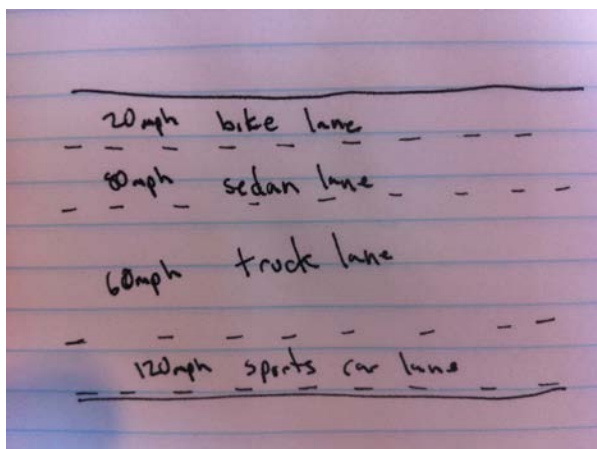 20mph bike lane
80mph sedan lane
60mph truck lane
120mph sports car lane